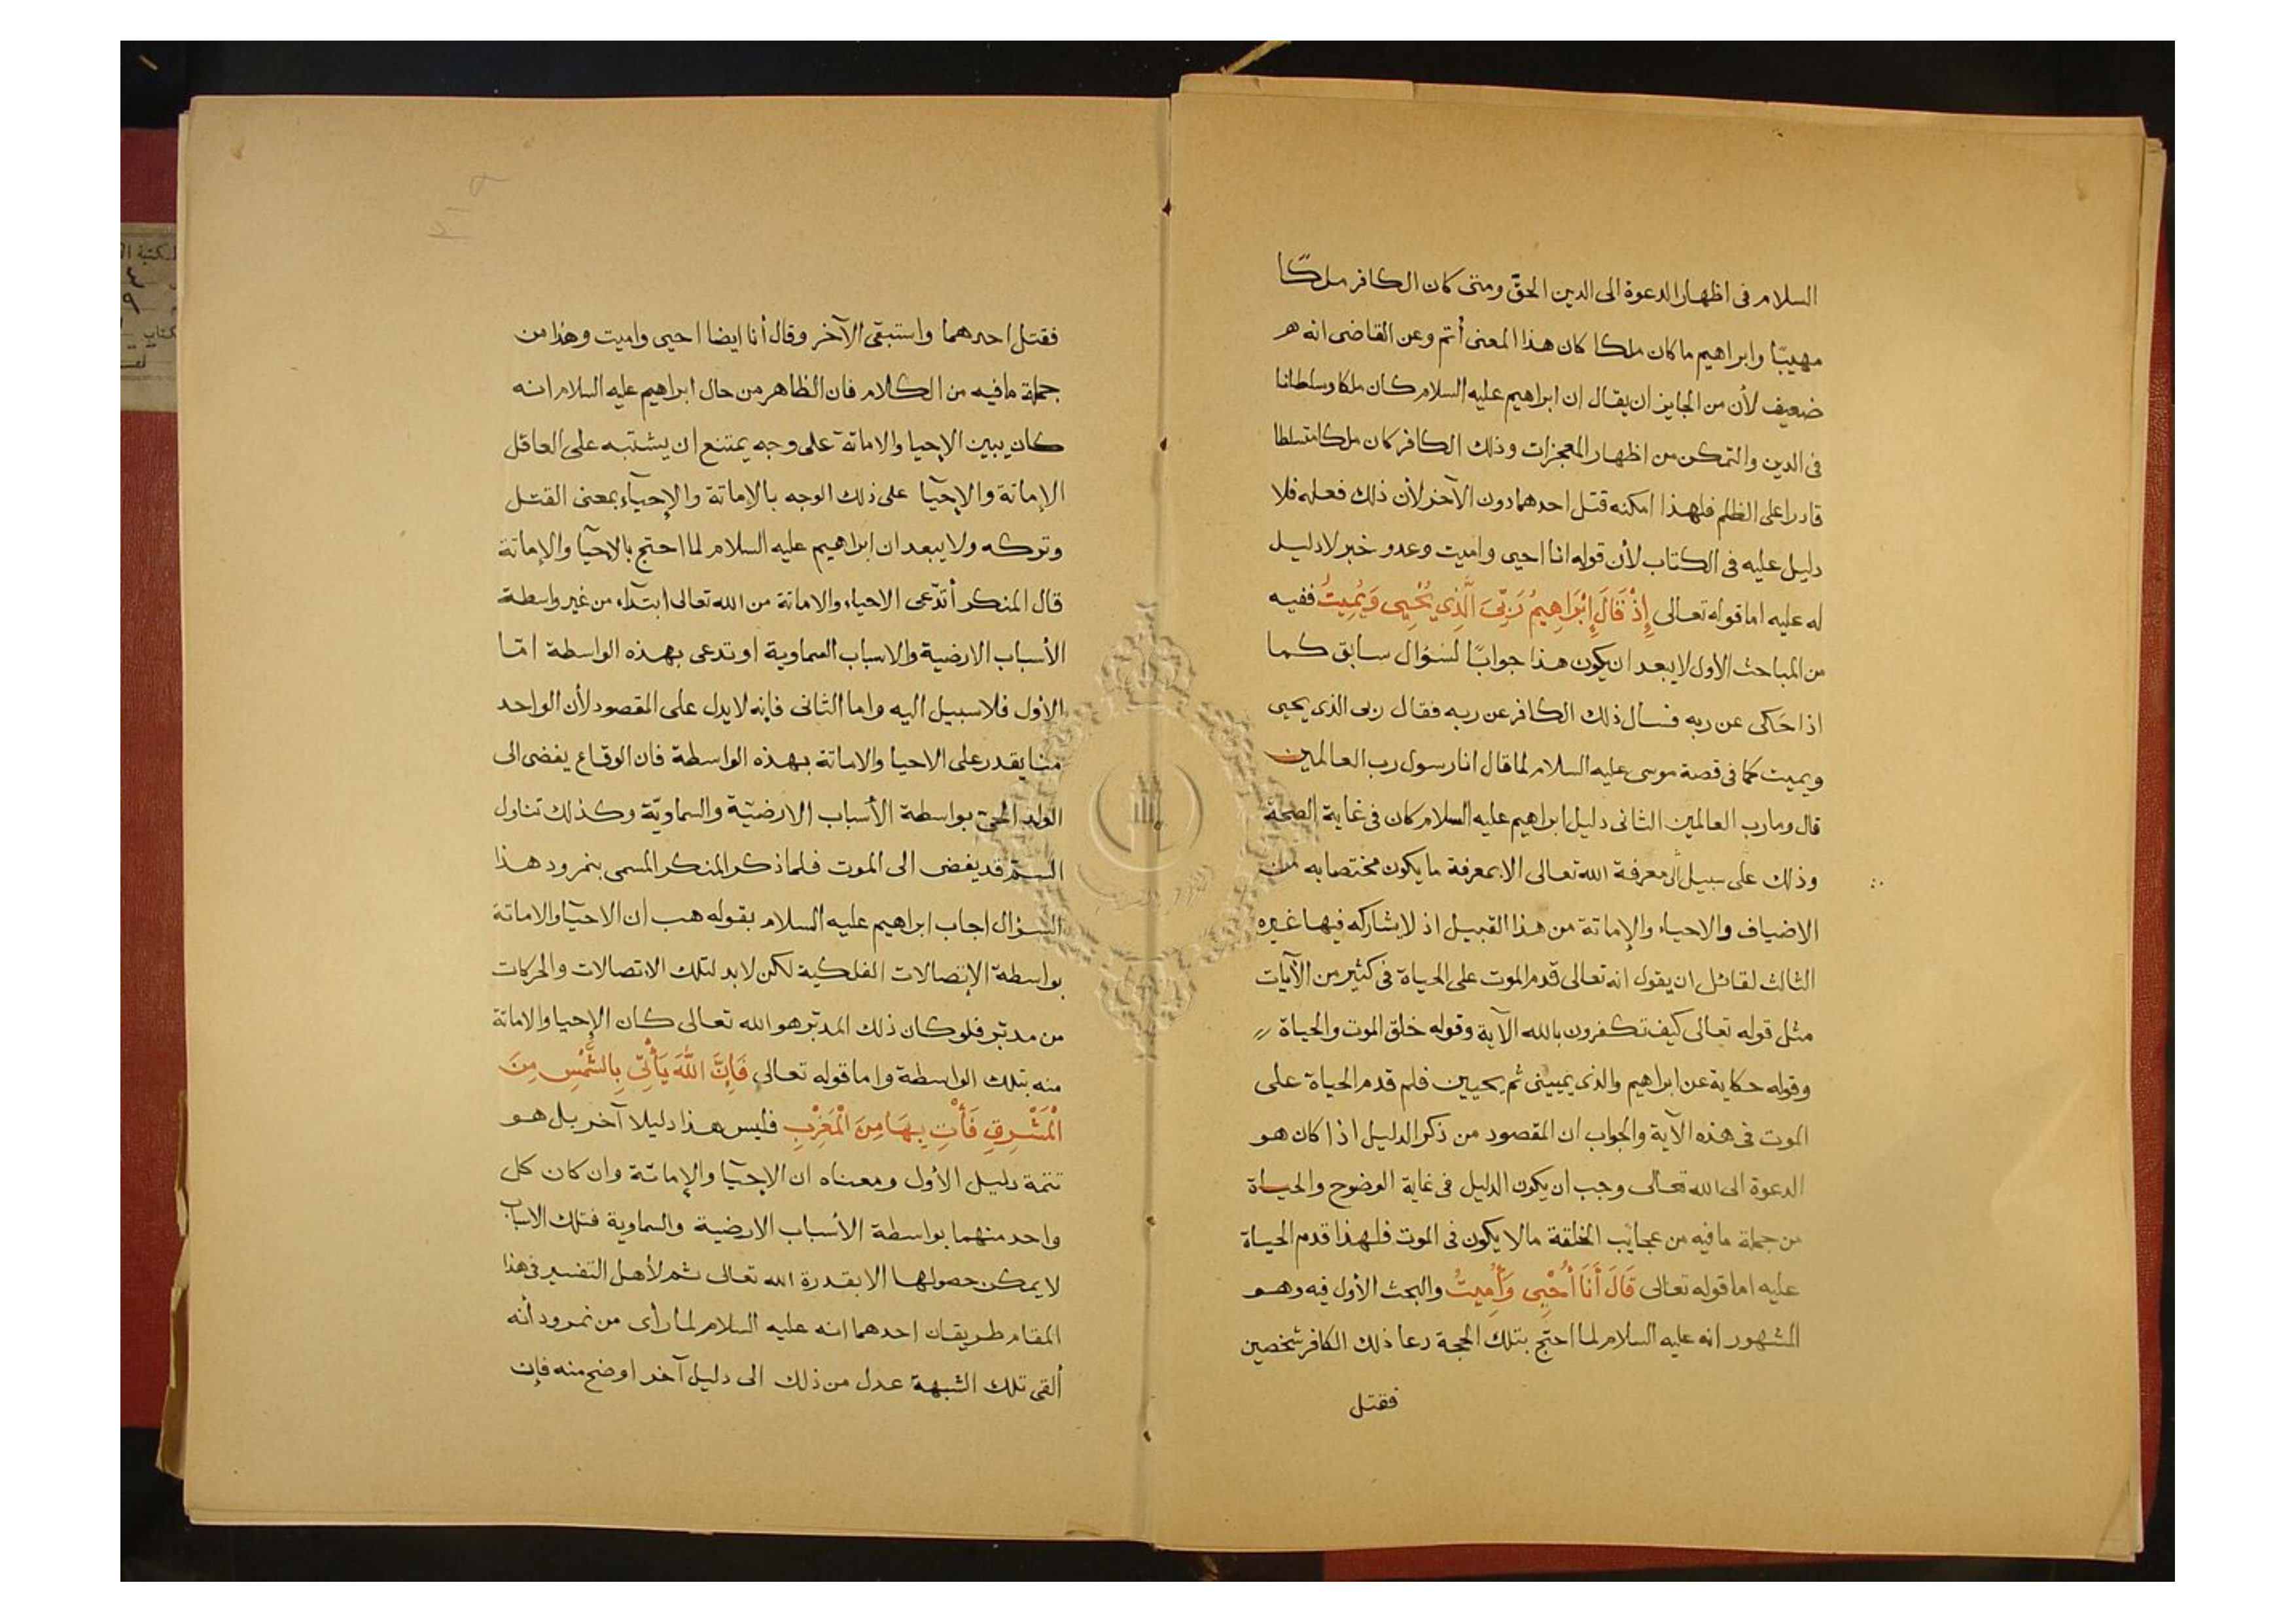 السلام فى اظهار الدعوة الى الدين الحقّ ومتى كان الكافر ملكًا
مهيبًا وابراهيم ما كان ملكا كان هذا المعنى أتم وعن القاضى انه هو
ضعيف لأن من الجايز ان يقال ان ابراهيم عليه السلام كان ملكا وسلطانا
فى الدين والتمكن من اظهار المعجزات وذلك الكافر كان ملكا متسلطا
قادرا على الظلم فلهذا امكنه قتل احدهما دون الآخر لأن ذلك فعله فلا
دليل عليه فى الكتاب لأن قوله انا احيى واميت وعدو خبر لا دليل
له عليه اما قوله تعالى إِذْ قَالَ إِبْرَاهِيمُ رَبِّىَ الَّذِي يُحْيِى وَيُمِيتُ ففيه
من المباحث الأول لا يبعد ان يكون هذا جوابًا لسؤال سابق كما
اذا حكى عن ربه فسأل ذلك الكافر عن ربه فقال ربى الذى يحيى
ويميت كما فى قصة موسى عليه السلام لما قال انا رسول رب العالمين
قال وما رب العالمين الثانى دليل ابراهيم عليه السلام كان فى غاية الصحة
وذلك على سبيل أن معرفة الله تعالى الا بمعرفة ما يكون مختصا به من
الاضياف والاحياء والإماتة من هذا القبيل اذ لا يشاركه فيها غيره
الثالث لقائل ان يقول انه تعالى قدم الموت على الحياة فى كثير من الآيات
مثل قوله تعالى كيف تكفرون بالله الآية وقوله خلق الموت والحياة
وقوله حكاية عن ابراهيم والذى يميتنى ثم يحيين فلم قدم الحياة على
الموت فى هذه الآية والجواب ان المقصود من ذكر الدليل اذا كان هو
الدعوة الى الله تعالى وجب ان يكون الدليل فى غاية الوضوح والحياة
من جملة ما فيه من عجايب الخلقة مالا يكون فى الموت فلهذا قدم الحياة
عليه اما قوله تعالى قَالَ أَنَا أُحْيِى وَأُمِيتُ والبحث الأول فيه وهو
المشهور انه عليه السلام لما احتج بتلك الحجة دعا ذلك الكافر شخصين
فقتل
فقتل احدهما واستبقى الآخر وقال أنا ايضا احيى واميت وهذا من
جملة ما فيه من الكلام فان الظاهر من حال ابراهيم عليه السلام انه
كان يبين الإحيا والاماتة على وجه يمتنع ان يشتبه على العاقل
الإماتة والإحيآ على ذلك الوجه بالإماتة والإحيآء بمعنى القتل
وتركه ولا يبعد ان ابراهيم عليه السلام لما احتج بالإحيآ والإماتة
قال المنكر أتدّعى الاحياء والاماتة من الله تعالى ابتدآء من غير واسطة
الأسباب الارضية والاسباب السماوية او تدعى بهذه الواسطة امّا
الأول فلا سبيل اليه واما الثانى فإنه لا يدل على المقصود لأن الواحد
منا يقدر على الاحيا والاماتة بهذه الواسطة فان الوقاع يفضى الى
الولد الحىّ بواسطة الأسباب الارضيّة والسماويّة وكذلك تناول
السمّ قد يفضى الى الموت فلما ذكر المنكر المسمى بنمرود هذا
السؤال اجاب ابراهيم عليه السلام بقوله هب ان الاحيآ والاماتة
بواسطة الإتصالات الفلكية لكن لابد لتلك الاتصالات والحركات
من مدبّر فلو كان ذلك المدبّر هو الله تعالى كان الإحيا والاماتة
منه بتلك الواسطة واما قوله تعالى فَإِنَّ اللَّهَ يَأْتِى بِالشَّمْسِ مِنَ
الْمَشْرِقِ فَأْتِ بِهَا مِنَ الْمَغْرِبِ فليس هذا دليلا آخر بل هو
تتمة دليل الأول ومعناه ان الإحيآ والإماتة وان كان كل
واحد منهما بواسطة الأسباب الارضية والسماوية فتلك الاسباب
لا يمكن حصولها الا بقدرة الله تعالى ثم لأهل التفسير فى هذا
المقام طريقان احدهما انه عليه السلام لما رأى من نمرود أنه
ألقى تلك الشبهة عدل من ذلك الى دليل آخر اوضح منه فإن